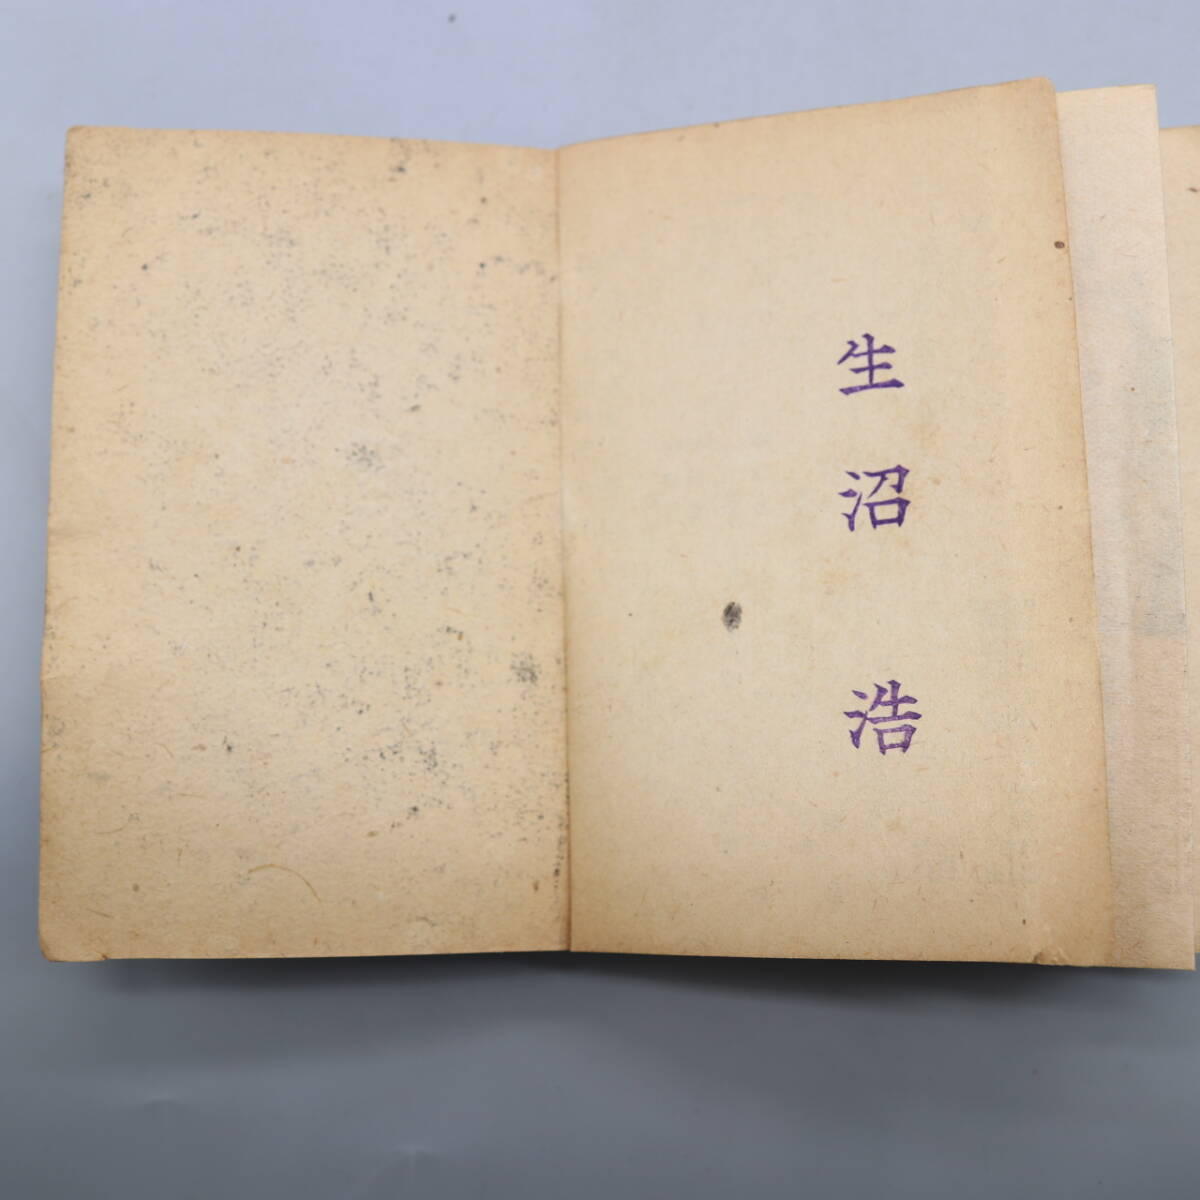 生沼浩